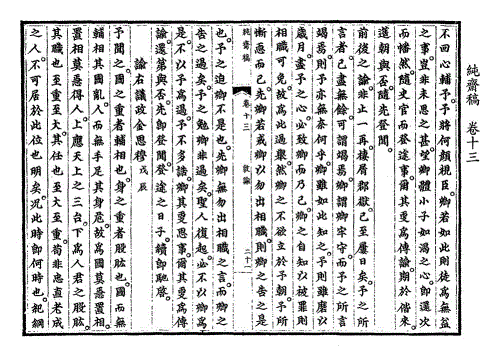 純齋稿 卷十三
不回心輔予。予將何顏視臣。卿若如此則徒爲無益
之事。豈非未思之甚。望卿體小子如渴之心。卽還次
而幡然。隨史官而登途事。爾其更爲傳諭。期於偕來。
還朝與否。隨先登聞。
前後之諭。非止一再。棲屑郡獄。已至屢日矣。予之所
言者。已盡無餘。可謂竭焉。卿謂卿牢守。而予之所言
竭焉。則予亦無奈何乎。卿雖如此。知之予則雖磨以
歲月。盡予之心。必致卿而乃已。卿之自知以被罪則
相職可免。故爲此過擧。然卿之不欲立於予朝。予所
慚恧而已。先卿若或卿以勿出相職則卿之告之是
純齋稿 卷十三 敦諭 二十二
也。予之迫卿不是也。先卿無勿出相職之言。而卿之
告之過矣。予之勉卿非過矣。聖人復起。必不以卿爲
是。不以予爲過。予不多誥卿。其更思事。爾其更爲傳
諭。還第與否。先卽登聞。登途之日子。續卽馳啓。
諭右議政金思穆 戊辰
予聞之。國之重者輔相也。身之重者股肱也。國而無
輔相其國亂。人而無手足其身危。故爲國莫惡置相。
置相莫惡得人。上應天上之三台。下爲人君之股肱。
其職也至重至大。其任也至大至重。苟非忠直老成
之人。不可居於此位也明矣。況此時卽何時也。紀綱